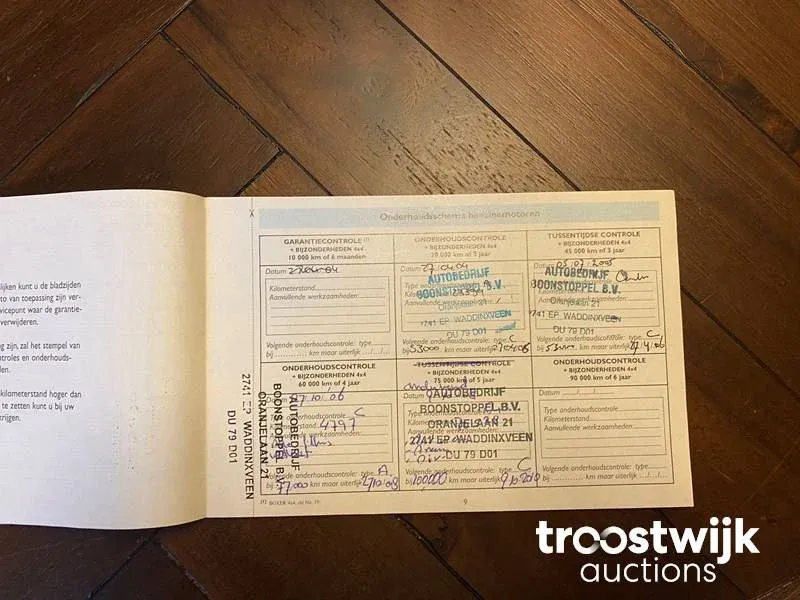 lijken kunt u de bladzijden
to van toepassing zijn ver-
vicepunt waar de garantie-
verwijderen.
g zijn, zal het stempel van
troles en onderhouds-
den.
kilometerstand hoger dan
te zetten kunt u bij uw
krijgen.
Onderhoudsschema benzinemotoren
GARANTIECONTROLE (1)
+ BIJZONDERHEDEN 4x4
10 000 km of 6 maanden
Datum
Kilometerstand:
Aanvullende werkzaamheden:
Volgende onderhoudscontrole: type
bij km maar uiterlijk
ONDERHOUDSCONTROLE
+ BIJZONDERHEDEN 4x4
Datum 27/04/04
AUTOBEDRIJF
BOONSTOPPEL B.V.
Oranjelaan 21
2741 EP WADDINXVEEN
DU 79 D01
Volgende onderhoudscontrole: type C
bij 53000 km maar uiterlijk
TUSSENTIJDSE CONTROLE
+ BIJZONDERHEDEN 4x4
45 000 km of 3 jaar
Datum 05/07/2005
AUTOBEDRIJF
BOONSTOPPEL B.V.
Oranjelaan 21
2741 EP WADDINXVEEN
DU 79 D01
Volgende onderhoudscontrole: type C
bij km maar uiterlijk
ONDERHOUDSCONTROLE
+ BIJZONDERHEDEN 4x4
60 000 km of 4 jaar
Datum 27/10/06
Type onderhoudscontrole: C
4797
Volgende onderhoudscontrole: type A
bij 77000 km maar uiterlijk 27/10/08
AUTOBEDRIJF
BOONSTOPPEL B.V.
ORANJELAAN 21
2741 EP WADDINXVEEN
DU 79 D01
TUSSENTIJDSE CONTROLE
+ BIJZONDERHEDEN 4x4
75 000 km of 5 jaar
onderhoud
Datum
AUTOBEDRIJF
BOONSTOPPEL B.V.
ORANJELAAN 21
2741 EP WADDINXVEEN
DU 79 D01
Volgende onderhoudscontrole: type C
bij 100000 km maar uiterlijk
ONDERHOUDSCONTROLE
+ BIJZONDERHEDEN 4x4
90 000 km of 6 jaar
Datum
Type onderhoudscontrole:
Kilometerstand:
Aanvullende werkzaamheden:
Volgende onderhoudscontrole: type
bij km maar uiterlijk
9
troostwijk
auctions